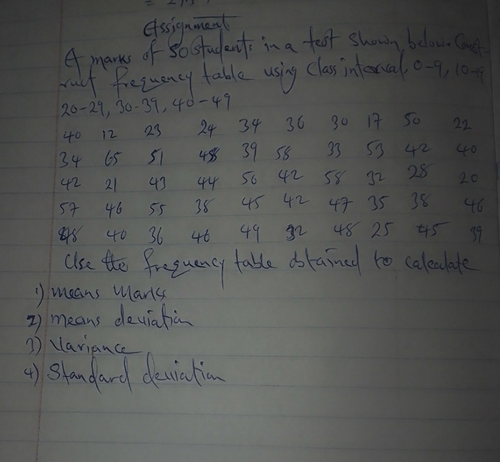 Assignment
A marks of 50 students in a test shown below. Const-
ruct frequency table using class interval, 0-9, 10-19
20-29, 30-39, 40-49
40 12 23 24 34 36 30 17 50 22
34 65 51 48 39 58 33 53 42 40
42 21 43 44 50 42 58 32 28 20
57 46 55 38 45 42 47 35 38 46
48 40 36 46 49 32 48 25 45 39
Use the frequency table obtained to calculate
1) means Marks
2) means deviation
3) Variance
4) Standard deviation